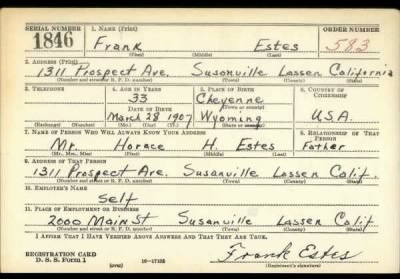 SERIAL NUMBER 1. NAME (Print) ORDER NUMBER
1846 Frank Estes 583
(First) (Middle) (Last)
2. ADDRESS (Print)
1311 Prospect Ave. Susanville Lassen California
(Number and street or R. F. D. number) (Town) (County) (State)
3. TELEPHONE 4. AGE IN YEARS 5. PLACE OF BIRTH 6. COUNTRY OF
33 Cheyenne CITIZENSHIP
DATE OF BIRTH (Town or county)
March 28 1907 Wyoming U.S.A.
(Exchange) (Number) (Mo.) (Day) (Yr.) (State or country)
7. NAME OF PERSON WHO WILL ALWAYS KNOW YOUR ADDRESS 8. RELATIONSHIP OF THAT PERSON
Mr. Horace H. Estes Father
(Mr., Mrs., Miss) (First) (Middle) (Last)
9. ADDRESS OF THAT PERSON
1311 Prospect Ave. Susanville Lassen Calif.
(Number and street or R. F. D. number) (Town) (County) (State)
10. EMPLOYER'S NAME
Self
11. PLACE OF EMPLOYMENT OR BUSINESS
2000 Main St Susanville Lassen Calif
(Number and street or R. F. D. number) (Town) (County) (State)
I AFFIRM THAT I HAVE VERIFIED ABOVE ANSWERS AND THAT THEY ARE TRUE.
REGISTRATION CARD Frank Estes
D. S. S. Form 1 (over) 16-17105 (Registrant's signature)